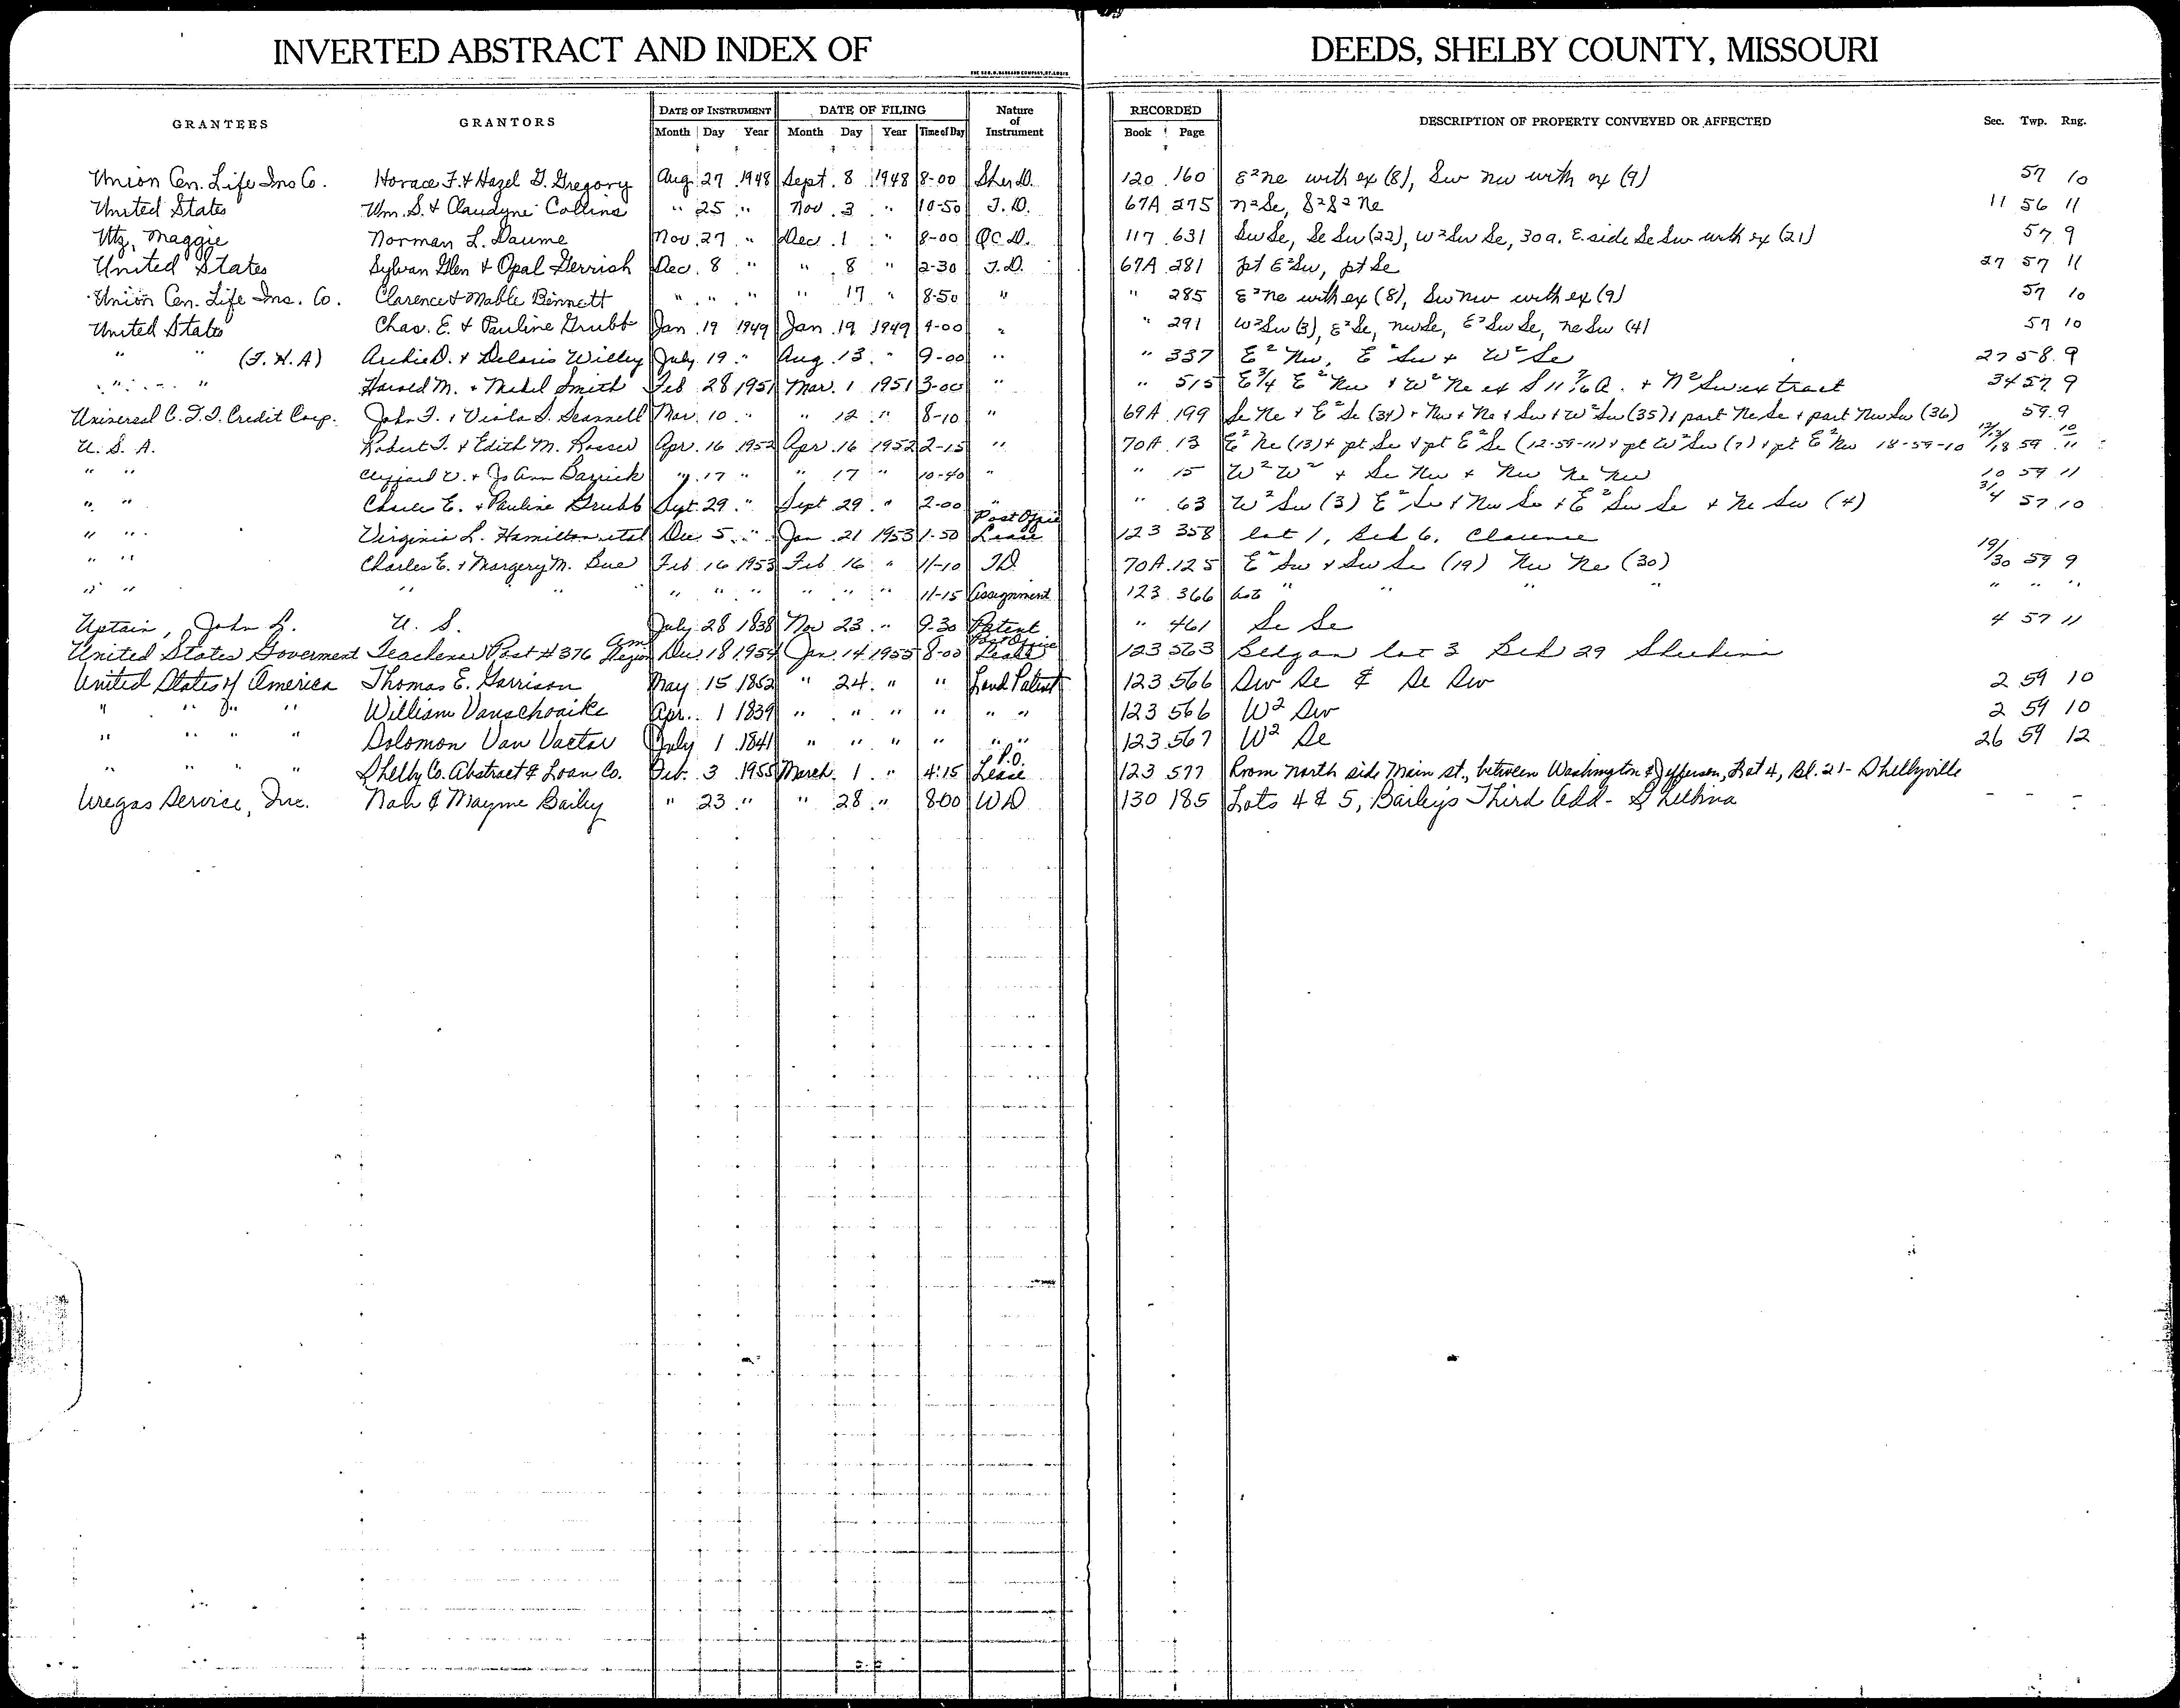 INVERTED ABSTRACT AND INDEX OF DEEDS, SHELBY COUNTY, MISSOURI
GRANTEES GRANTORS DATE OF INSTRUMENT DATE OF FILING Nature of Instrument RECORDED DESCRIPTION OF PROPERTY CONVEYED OR AFFECTED Sec. Twp. Rng.
Month Day Year Month Day Year Time of Day Book Page
Union Cen. Life Ins Co. Horace F. & Hazel G. Gregory Aug 27 1948 Sept. 8 1948 8-00 Sher D. 120 160 E²ne with ex (8), Sw nw with ex (9) 57 10
United States Wm. S. & Claudyne Collins " 25 " Nov. 3 " 10-50 T.D. 67A 275 n²Se, S²S² Ne 11 56 11
Utz, Maggie Norman L. Daume Nov. 27 " Dec. 1 " 8-00 QC D. 117 631 SwSe, Se Sw (22), W²Sw Se, 30a. E. side Se Sw with ex (21) 57 9
United States Sylvan Glen & Opal Gerrish Dec. 8 " " 8 " 2-30 T.D. 67A 281 pt E²Sw, pt Se 27 57 11
Union Cen. Life Ins. Co. Clarence & Mable Bennett " " " " 17 " 8-50 " " 285 E²ne with ex (8), Sw nw with ex (9) 57 10
United States Chas. E. & Pauline Grubb Jan 19 1949 Jan 19 1949 9-00 " " 291 W²Sw (3), E²Se, nwSe, E²Sw Se, ne Sw (4) 57 10
" " (F.H.A) Archie D. & Deloris Willey July 19 " Aug. 13 " 9-00 " " 337 E² Nw, E² Sw & W² Se 27 58 9
" " " Harold M. & Mabel Smith Feb 28 1951 Mar. 1 1951 3-00 " " 515 E¾ E² Nw & W² Ne ex S 11 a. + N² Sw ex tract 34 57 9
Universal C.I.T. Credit Corp. John T. & Viola S. Scannell Mar. 10 " " 12 " 8-10 " 69A 199 Se Ne & E² Se (34) - Nw & Ne & Sw & W² Sw (35) & part Ne Se & part Nw Sw (36) 59 9
U.S.A. Robert T. & Edith M. Rosser Apr. 16 1952 Apr. 16 1952 2-15 " 70A 13 E² Ne (13) & pt Se & pt E² Se (12-59-11) & pt W² Sw (7) & pt E² Nw 18-59-10 59
" " Clifford V. & Jo Ann Barrick " 17 " " 17 " 10-40 " " 15 W² W² & Se Nw & Nw Ne Nw 10 59 11
" " Charles E. & Pauline Grubb Sept 29 " Sept 29 " 2-00 " " 63 W² Sw (3) E² Se & Nw Se & E² Sw Se & Ne Sw (4) 3/4 57 10
" " Virginia L. Hamilton et al Dec 5 " Jan 21 1953 1-50 Post Office Lease 123 358 lot 1, Blk 6, Clarence
" " Charles E. & Margery M. Bue Feb 16 1953 Feb 16 " 11-10 TD 70A 125 E² Sw & Sw Se (19) Nw Ne (30) 19/30 59 9
" " " " " " " " " " 11-15 Assignment 123 366 " " " " " " "
Uptain, John L. U. S. July 28 1838 Nov 23 " 9-30 Patent " 461 Se Se 4 57 11
United States Goverment Post #376 Am Legion Dec 18 1954 Jan. 14 1955 8-00 Post Office Lease 123 563 Bldg on lot 3 Blk 29 Shelbina
United States of America Thomas E. Garrison May 15 1852 " 24 " " Land Patent 123 566 Sw Se & Se Sw 2 59 10
" " " " William Vanschoaike Apr. 1 1839 " " " " " " 123 566 W² Sw 2 59 10
" " " " Solomon Van Vactor July 1 1841 " " " " " " 123 567 W² Se 26 59 12
" " " " Shelby Co. Abstract & Loan Co. Feb. 3 1955 March 1 " 4:15 P.O. Lease 123 577 Room north side Main st., between Washington & Jefferson, Lot 4, Bl. 21 - Shelbyville
Uregas Service, Inc. Nah & Mayme Bailey " 23 " " 28 " 8:00 WD 130 185 Lots 4 & 5, Baileys Third Add - Shelbina - - -